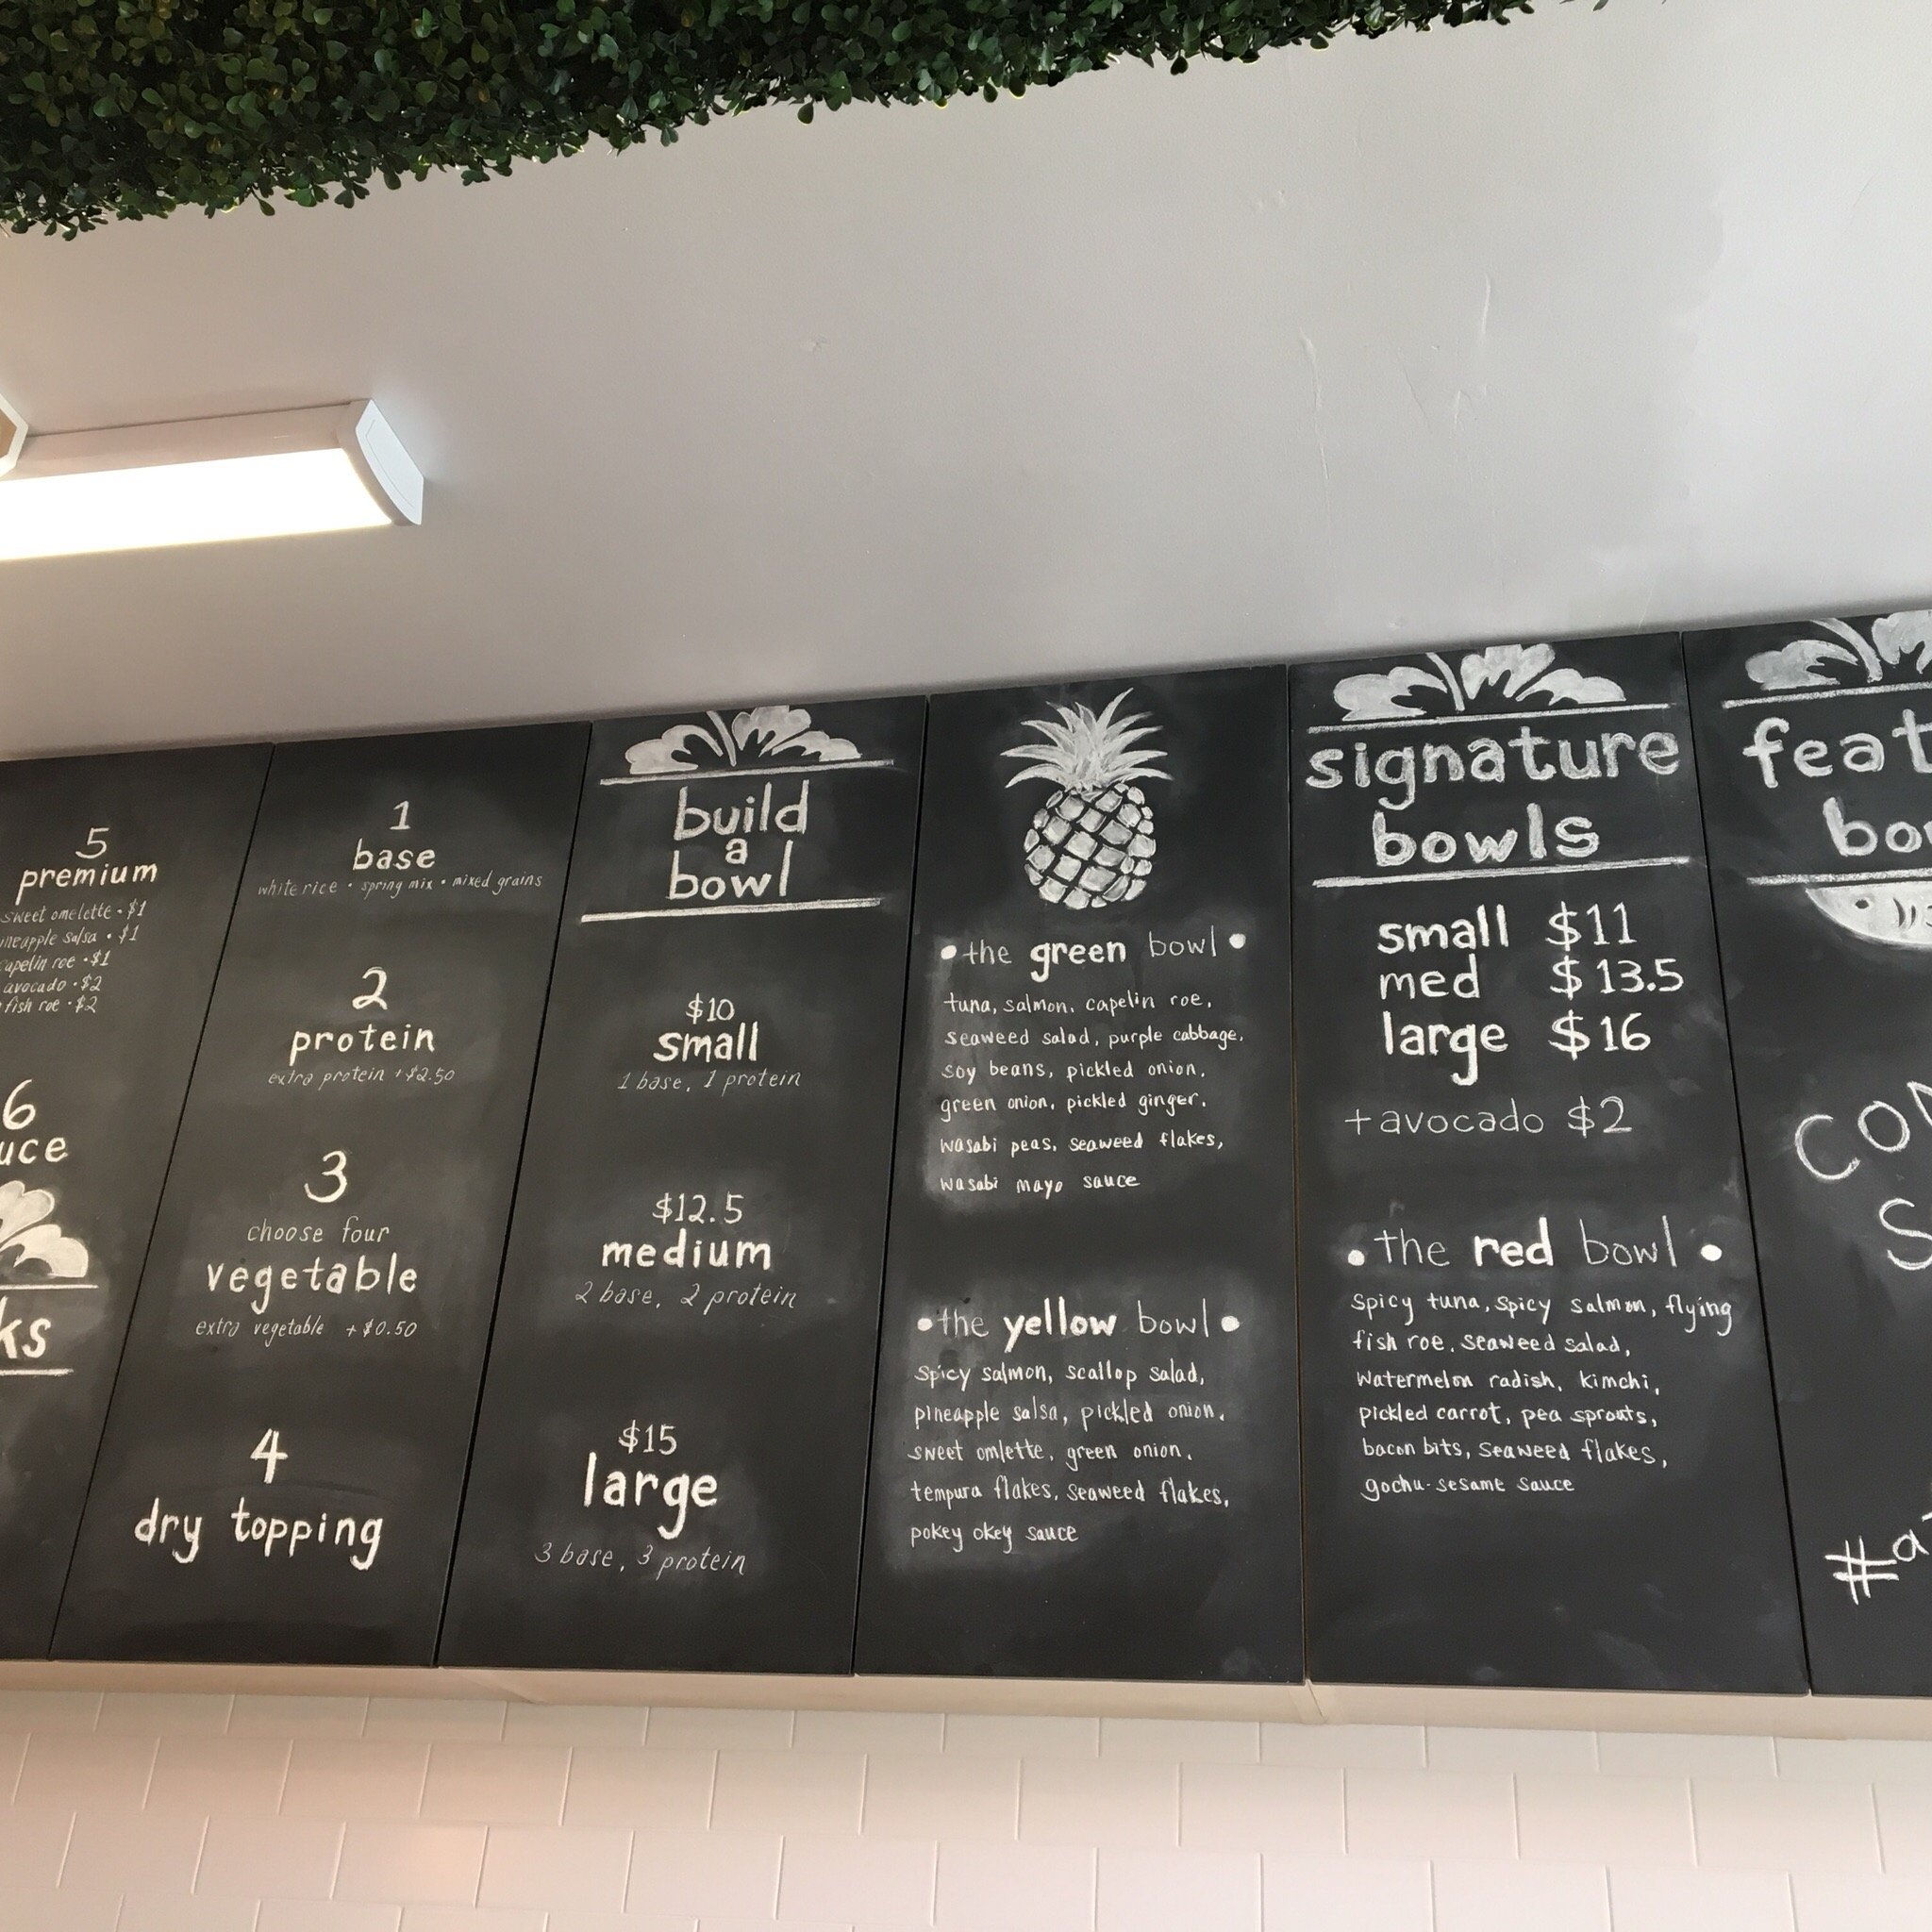 5
premium
sweet omelette · $1
salsa · $1
roe · $1
avocado · $2
fish roe · $2
6
1
base
white rice · spring mix · mixed grains
2
protein
extra protein +$2.50
3
choose four
vegetable
extra vegetable +$0.50
4
dry topping
build
a
bowl
$10
small
1 base, 1 protein
$12.5
medium
2 base, 2 protein
$15
large
3 base, 3 protein
• the green bowl •
tuna, salmon, capelin roe,
seaweed salad, purple cabbage,
soy beans, pickled onion,
green onion, pickled ginger,
wasabi peas, seaweed flakes,
wasabi mayo sauce
• the yellow bowl •
spicy salmon, scallop salad,
pineapple salsa, pickled onion,
sweet omlette, green onion,
tempura flakes, seaweed flakes,
pokey okey sauce
signature
bowls
small $11
med $13.5
large $16
+avocado $2
• the red bowl •
spicy tuna, spicy salmon, flying
fish roe, seaweed salad,
watermelon radish, kimchi,
pickled carrot, pea sprouts,
bacon bits, seaweed flakes,
gochu-sesame sauce